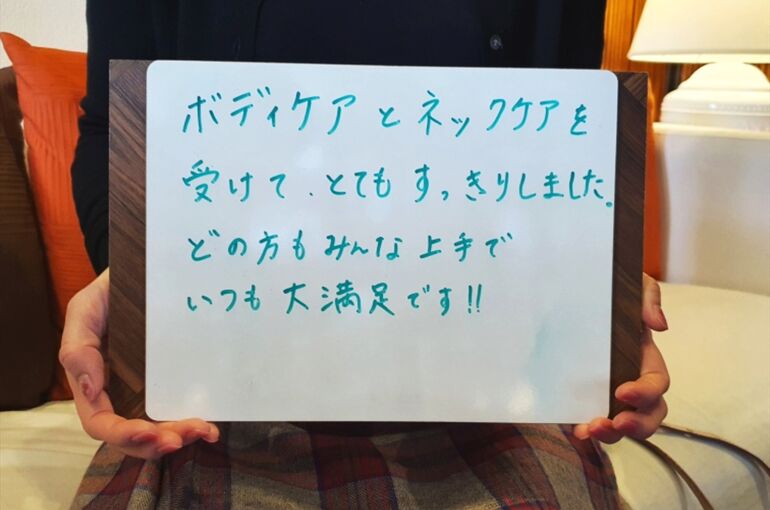 ボディケアとネックケアを
受けて、とてもすっきりしました。
どの方もみんな上手で
いつも大満足です!!